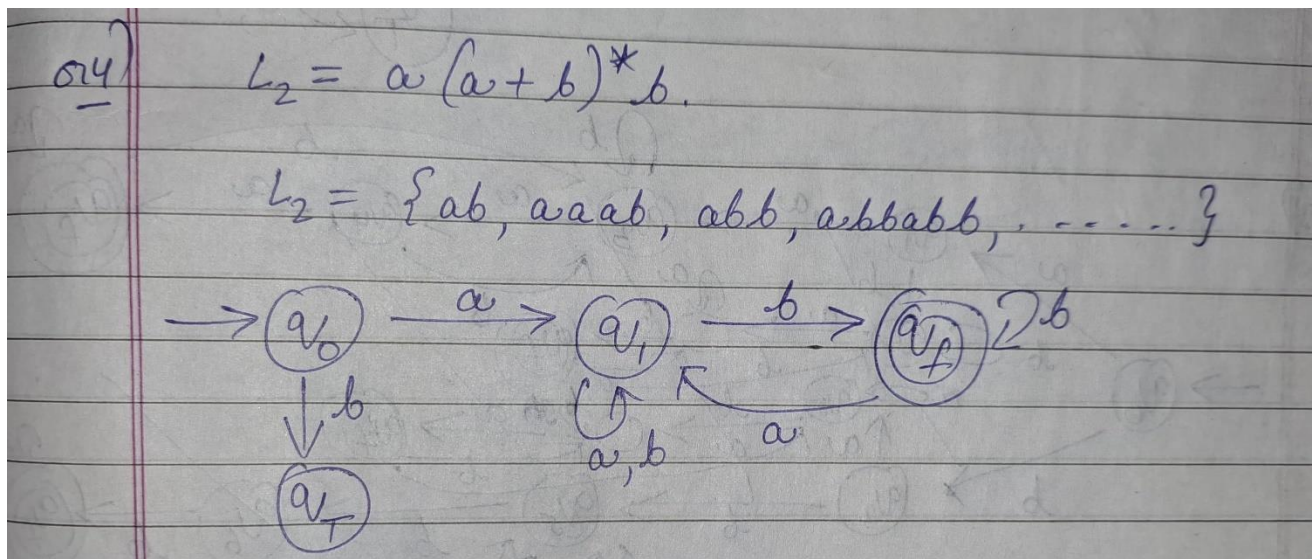 Q4)
L₂ = a (a + b)* b.
L₂ = { ab, aaab, abb, abbabb, ...... }
→ q₀ a → q₁ b → q_f b
b a, b a
q_T